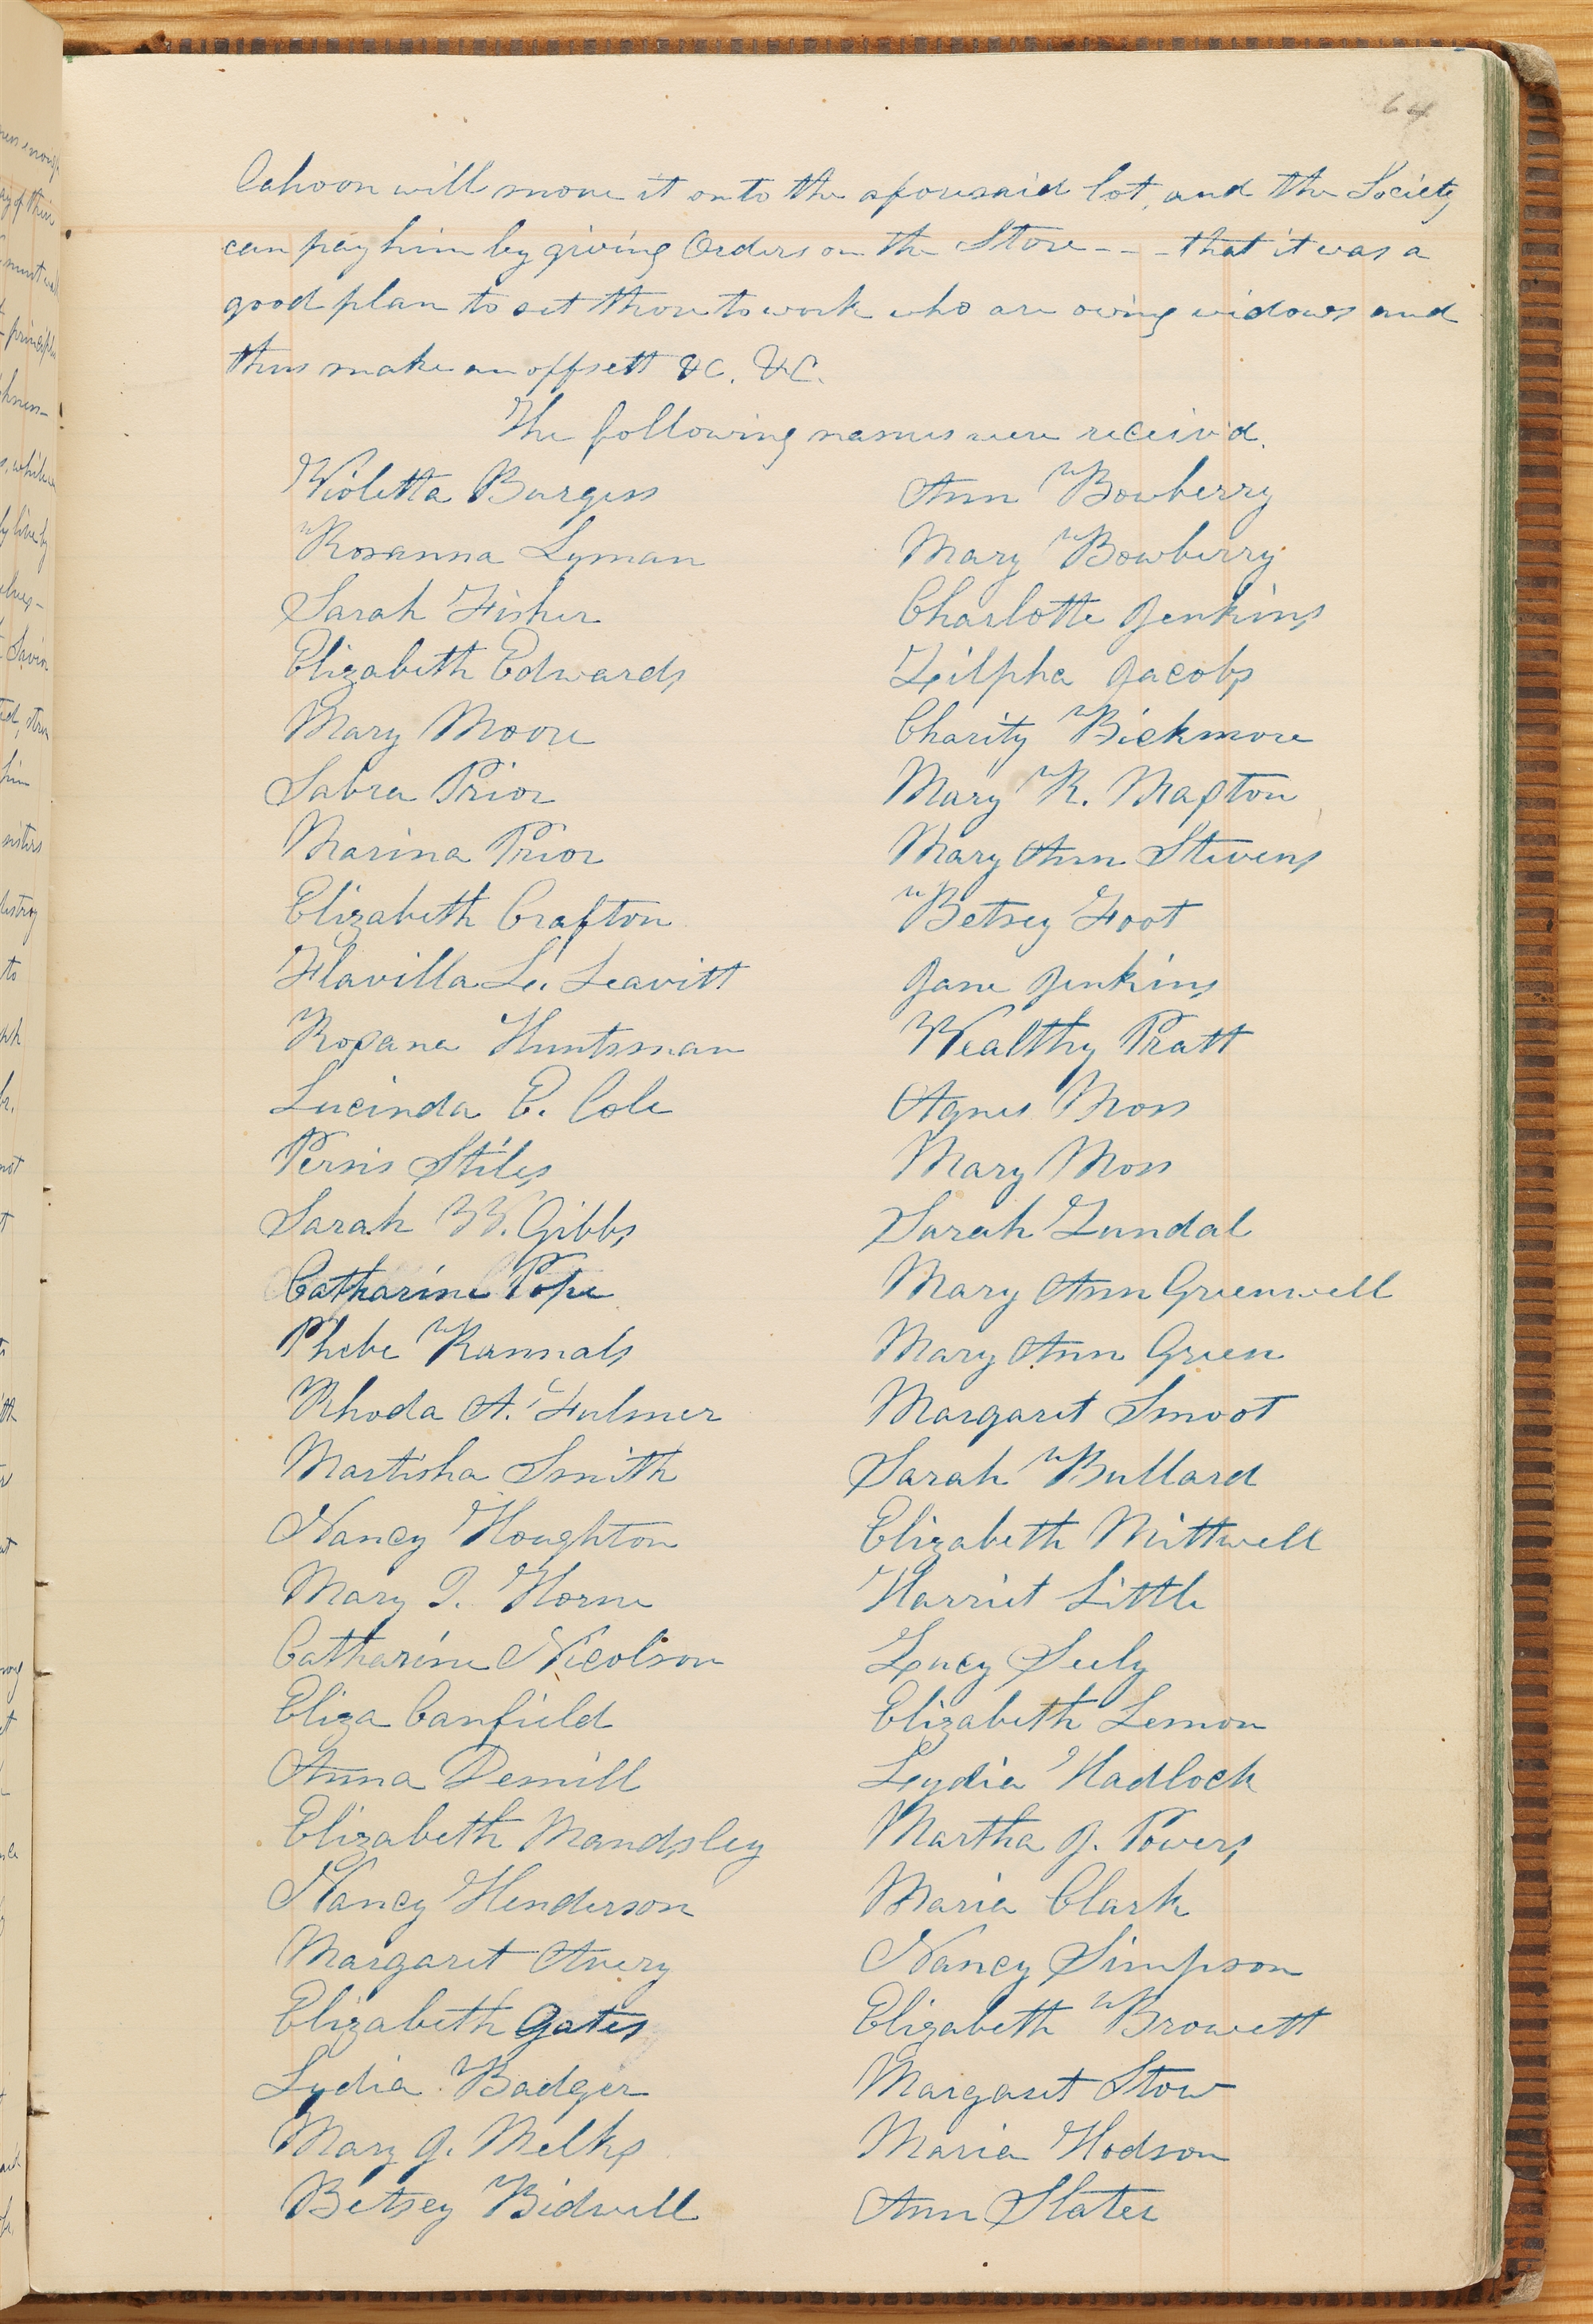 64
Cahoon will move it onto the aforesaid lot, and the Society
can pay him by giving Orders on the Store - - - that it was a
good plan to set those to work who are owing widows and
thus make an offsett &C. &C.
The following names were receiv'd.
Violetta Burgess
Rosanna Lyman
Sarah Fisher
Elizabeth Edwards
Mary Moore
Sabra Prior
Marina Prior
Elizabeth Crafton
Flavilla L. Leavitt
Roxana Huntsman
Lucinda E. Cole
Persis Stiles
Sarah W. Gibbs
Catharine Pope
Phebe Runnals
Rhoda A. Fulmer
Martisha Smith
Nancy Houghton
Mary I. Horne
Catharine Nicolson
Eliza Canfield
Anna Demill
Elizabeth Mandsley
Nancy Henderson
Margaret Avery
Elizabeth Gates
Lydia Badger
Mary J. Melks
Betsey Bidwell
Ann Bowberry
Mary Bowberry
Charlotte Jenkins
Zilpha Jacobs
Charity Bickmore
Mary R. Maxton
Mary Ann Stevens
Betsey Foot
Jane Jenkins
Wealthy Pratt
Agnes Moss
Mary Moss
Sarah Zundal
Mary Ann Greenwell
Mary Ann Green
Margaret Smoot
Sarah Bullard
Elizabeth Mittwell
Harriet Little
Lucy Seely
Elizabeth Lemon
Lydia Hadlock
Martha J. Powers
Maria Clark
Nancy Simpson
Elizabeth Browett
Margaret Stow
Maria Hodson
Ann Slater